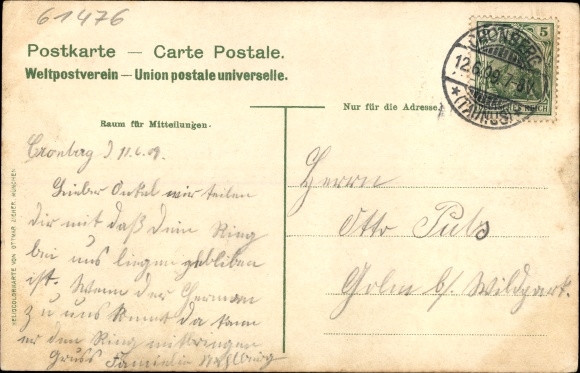 61476
Postkarte — Carte Postale.
Weltpostverein — Union postale universelle.
Raum für Mitteilungen.
Nur für die Adresse.
5
CRONBERG
12.6.09. 7-8N.
* (TAUNUS)
REICH
Cronberg 11.6.09.
Lieber Onkel wir teilen
dir mit daß dein Ring
bei uns liegen geblieben
ist. Wenn der Hermann
zu uns kommt da kann
er den Ring mitbringen
Gruss Familie
Herrn
Otto Puls
Golm b/ Wildpark.
HELIOCOLORKARTE VON OTTMAR ZIEHER, MÜNCHEN